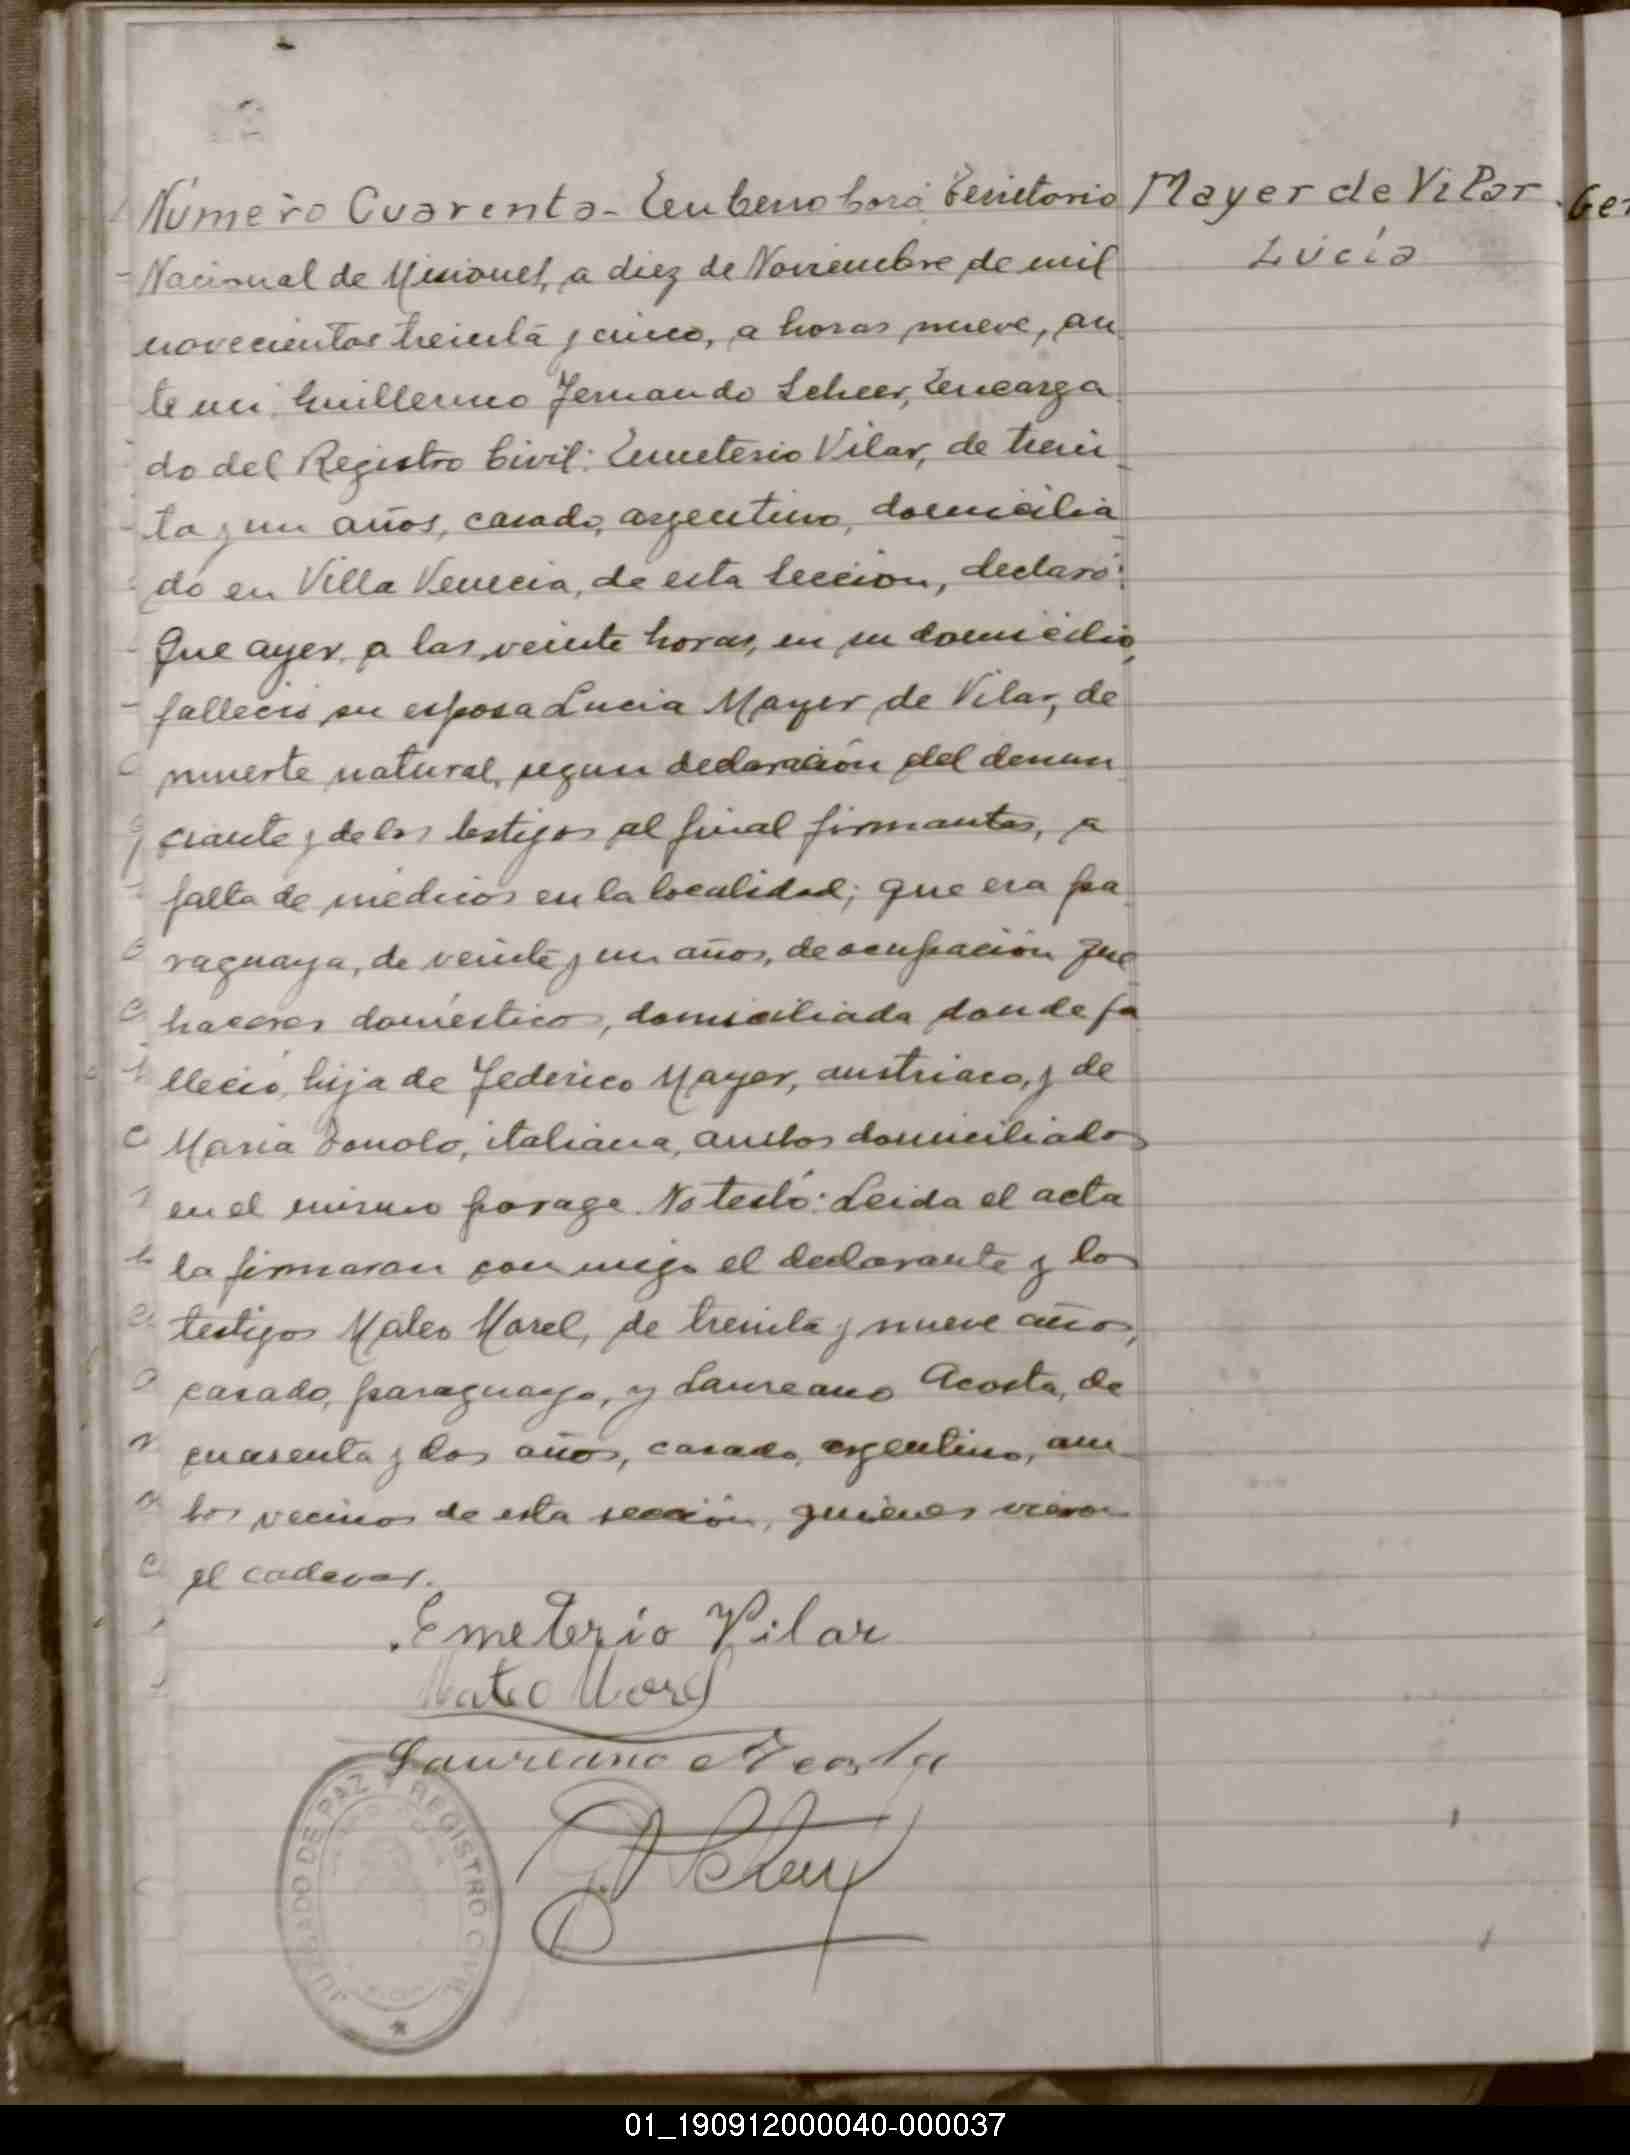 Número Cuarenta - En Cerro Corá Territorio
Mayer de Vilar
Lucía
Nacional de Misiones, a diez de Noviembre de mil
novecientos treinta y cinco, a horas nueve, an
te mi Guillermo Fernando Scheer, Encarga
do del Registro Civil: Emeterio Vilar, de trein
ta y un años, casado, argentino, domicilia
do en Villa Venecia, de esta seccion, declaró:
Que ayer, a las veinte horas, en su domicilio,
falleció su esposa Lucia Mayer de Vilar, de
muerte natural, segun declaración del denun
ciante y de los testigos al final firmantes, a
falta de médicos en la localidad; que era pa
raguaya, de veinte y un años, de ocupación que
haceres domésticos, domiciliada donde fa
lleció, hija de Federico Mayer, austriaco, y de
Maria Tonolo, italiana, ambos domiciliados
en el mismo parage. No testó. Leida el acta
la firmaron con migo el declarante y los
testigos Mateo Morel, de treinta y nueve años,
casado, paraguayo, y Laureano Acosta, de
cuarenta y dos años, casado, argentino, am
bos vecinos de esta sección, quienes vieron
el cadever.
Emeterio Vilar
Mateo Morel
Laureano Acosta
JUZGADO DE PAZ Y REGISTRO CIVIL
01_190912000040-000037